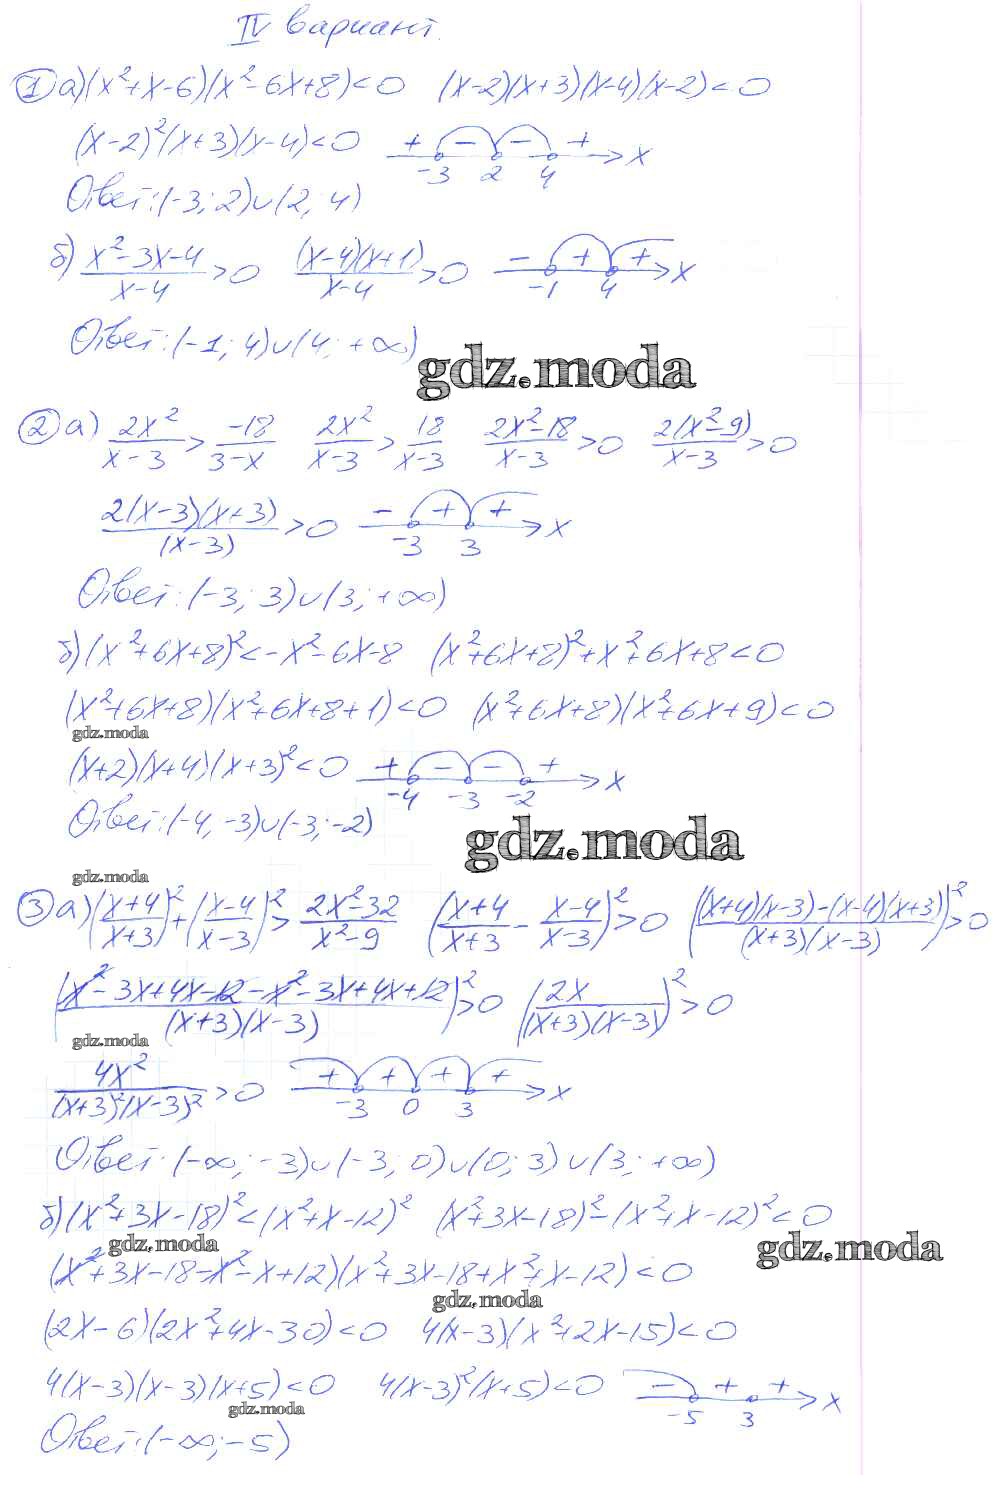 IV вариант.
① а) (x²+x-6)(x²-6x+8)<0 (x-2)(x+3)(x-4)(x-2)<0
(x-2)²(x+3)(x-4)<0 + - - + -3 2 4 x
Ответ: (-3; 2)∪(2, 4)
б) (x²-3x-4)/(x-4)>0 ((x-4)(x+1))/(x-4)>0 - + + -1 4 x
Ответ: (-1; 4)∪(4; +∞)
gdz.moda
② а) 2x²/(x-3) > -18/(3-x) 2x²/(x-3) > 18/(x-3) (2x²-18)/(x-3)>0 2(x²-9)/(x-3)>0
2(x-3)(x+3)/(x-3)>0 - + + -3 3 x
Ответ: (-3; 3)∪(3; +∞)
б) (x²+6x+8)²<-x²-6x-8 (x²+6x+8)²+x²+6x+8<0
(x²+6x+8)(x²+6x+8+1)<0 (x²+6x+8)(x²+6x+9)<0
gdz.moda
(x+2)(x+4)(x+3)²<0 + - - + -4 -3 -2 x
Ответ: (-4, -3)∪(-3; -2)
gdz.moda
gdz.moda
③ а) ((x+4)/(x+3))²+((x-4)/(x-3))² > (2x²-32)/(x²-9) ((x+4)/(x+3) - (x-4)/(x-3))²>0 (((x+4)(x-3)-(x-4)(x+3))/((x+3)(x-3)))²>0
((x²-3x+4x-12-x²-3x+4x+12)/((x+3)(x-3)))²>0 (2x/((x+3)(x-3)))²>0
gdz.moda
4x²/((x+3)²(x-3)²)>0 + + + + -3 0 3 x
Ответ: (-∞; -3)∪(-3; 0)∪(0; 3)∪(3; +∞)
б) (x²+3x-18)²<(x²+x-12)² (x²+3x-18)²-(x²+x-12)²<0
gdz.moda gdz.moda
(x²+3x-18-x²-x+12)(x²+3x-18+x²+x-12)<0
gdz.moda
(2x-6)(2x²+4x-30)<0 4(x-3)(x²+2x-15)<0
4(x-3)(x-3)(x+5)<0 4(x-3)²(x+5)<0 - + + -5 3 x
gdz.moda
Ответ: (-∞; -5)